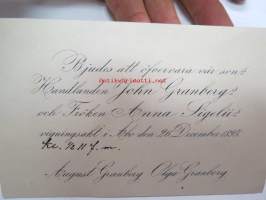 Bjudes att öfvervara vår son
Handlanden John Granberg's
och Fröken Anna Sigelii
vigningsakt i Åbo den 26 December
Kl. ½ 11 f.m.
August Granberg Olga Granberg